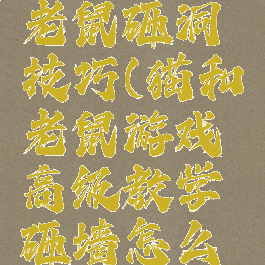 老鼠砸洞
技巧(猫和
老鼠游戏
高级教学
砸墙怎么